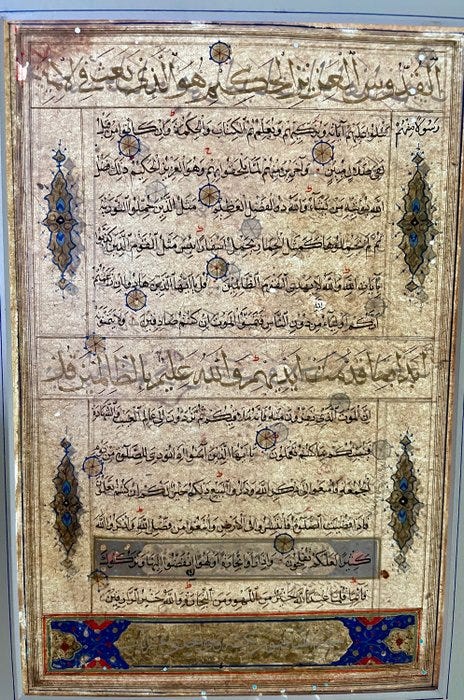 القدوس العزيز الحكيم هو الذي بعث في
رسولا منهم يتلوا عليهم آياته ويزكيهم ويعلمهم الكتاب والحكمة وان كانوا من قبل
لفي ضلال مبين وآخرين منهم لما يلحقوا بهم وهو العزيز الحكيم ذلك فضل
الله يؤتيه من يشاء والله ذو الفضل العظيم مثل الذين حملوا التورية
ثم لم يحملوها كمثل الحمار يحمل اسفارا بئس مثل القوم الذين كذبوا
بآيات الله والله لا يهدي القوم الظالمين قل يا ايها الذين هادوا ان زعمتم
انكم اولياء لله من دون الناس فتمنوا الموت ان كنتم صادقين ولا يتمنونه
ابدا بما قدمت ايديهم والله عليم بالظالمين قل
ان الموت الذي تفرون منه فانه ملاقيكم ثم تردون الى عالم الغيب والشهادة
فينبئكم بما كنتم تعملون يا ايها الذين آمنوا اذا نودي للصلوة من يوم
الجمعة فاسعوا الى ذكر الله وذروا البيع ذلكم خير لكم ان كنتم تعلمون
فاذا قضيت الصلوة فانتشروا في الارض وابتغوا من فضل الله واذكروا الله
كثيرا لعلكم تفلحون واذا راوا تجارة او لهوا انفضوا اليها وتركوك
قائما قل ما عند الله خير من اللهو ومن التجارة والله خير الرازقين